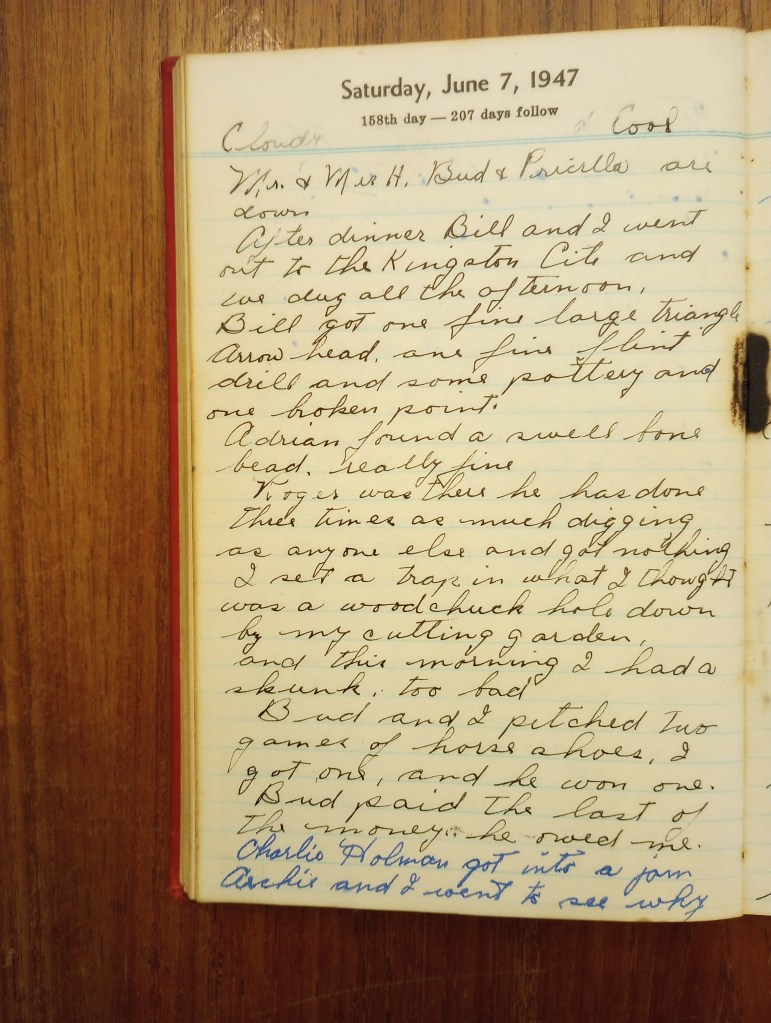 Saturday, June 7, 1947
158th day — 207 days follow
Cloudy Cool
Mr. & Mrs H. Bud & Pricilla are
down
After dinner Bill and I went
out to the Kingston Cite and
we dug all the afternoon,
Bill got one fine large triangle
Arrow head, one fine flint
drill and some pottery and
one broken point.
Adrian found a swell bone
bead. really fine
Roger was there he has done
three times as much digging
as anyone else and got nothing
I set a trap in what I thought
was a woodchuck hole down
by my cutting garden,
and this morning I had a
skunk, too bad
Bud and I pitched two
games of horse shoes, I
got one, and he won one.
Bud paid the last of
the money he owed me.
Charlie Holman got into a jam
Archie and I went to see why